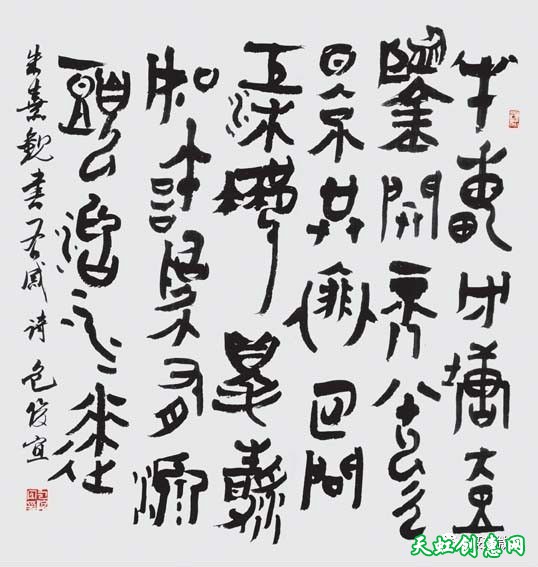 半畝方塘壹
鑒開天光雲
景共徘徊問
渠那得清
如許為有源
頭活水徠
朱熹觀書有感詩 包俊宜
天虹创意网